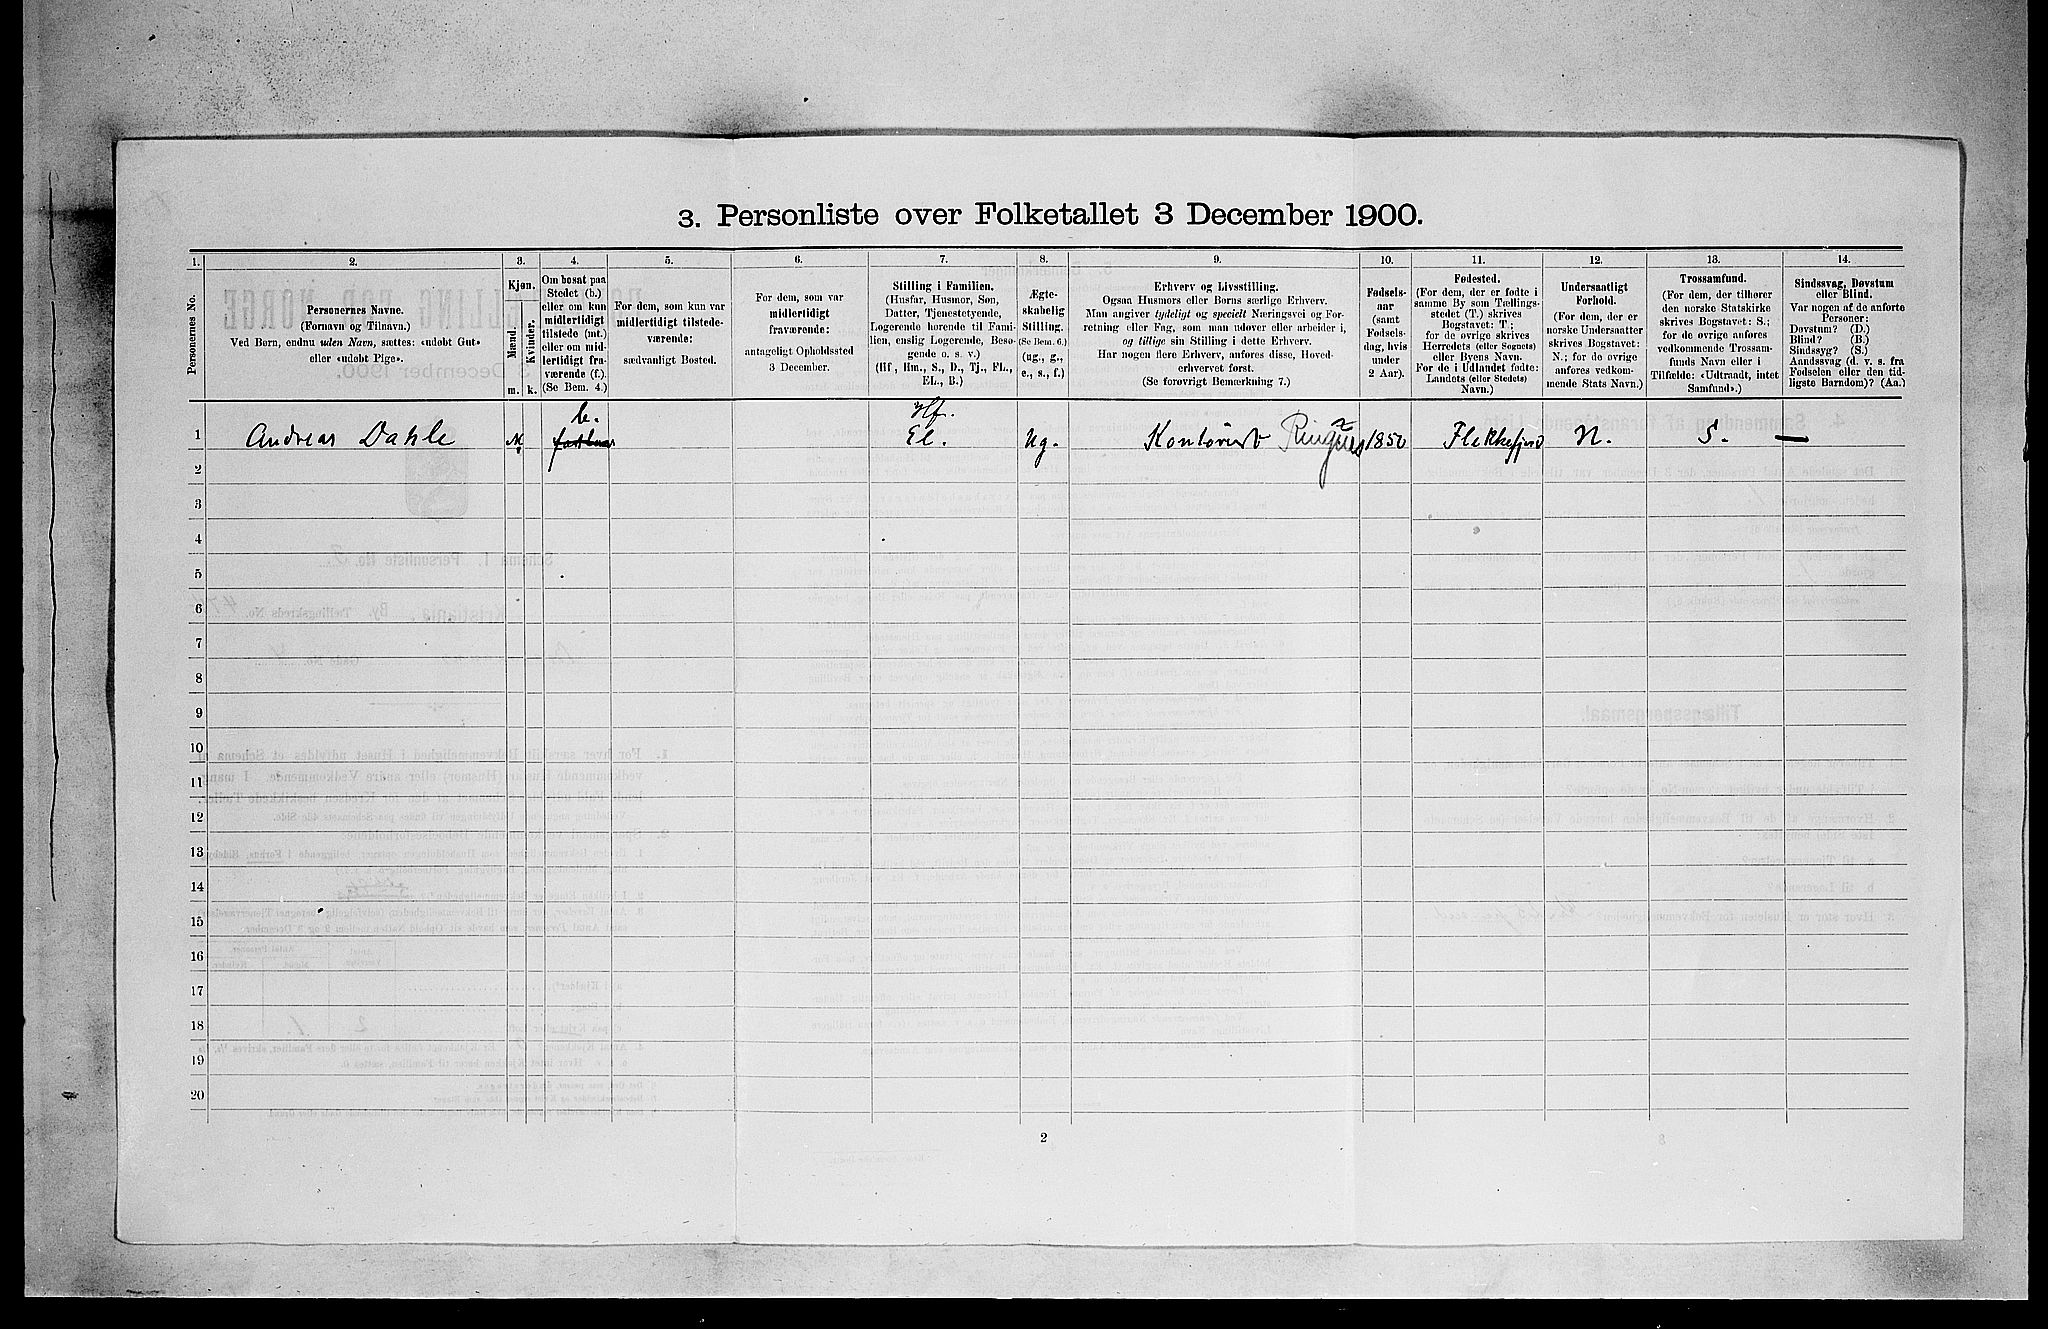 3. Personliste over Folketallet 3 December 1900.
1. 2. 3. 4. 5. 6. 7. 8. 9. 10. 11. 12. 13. 14.
Personernes No.
Personernes Navne.
(Fornavn og Tilnavn.)
Ved Børn, endnu uden Navn, sættes: «udøbt Gut»
eller «udøbt Pige».
Kjøn.
Mænd.
Kvinder.
m. k.
Om bosat paa
Stedet (b.)
eller om kun
midlertidigt
tilstede (mt.)
eller om mid-
lertidigt fra-
værende (f.).
(Se Bem. 4.)
For dem, som kun var
midlertidigt tilstede-
værende:
sædvanligt Bosted.
For dem, som var
midlertidigt
fraværende:
antageligt Opholdssted
3 December.
Stilling i Familien.
(Husfar, Husmor, Søn,
Datter, Tjenestetyende,
Logerende hørende til Fami-
lien, enslig Logerende, Besø-
gende o. s. v.)
(Hf, Hm., S., D., Tj., FL.,
EL., B.)
Ægte-
skabelig
Stilling.
(Se Bem. 6.)
(ug., g.,
e., s., f.)
Erhverv og Livsstilling.
Ogsaa Husmors eller Børns særlige Erhverv.
Man angiver tydeligt og specielt Næringsvei og For-
retning eller Fag, som man udøver eller arbeider i,
og tillige sin Stilling i dette Erhverv.
Har nogen flere Erhverv, anføres disse, Hoved-
erhvervet først.
(Se forøvrigt Bemærkning 7.)
Fødsels-
aar
(samt
Fødsels-
dag, hvis
under
2 Aar).
Fødested.
(For dem, der er fødte i
samme By som Tællings-
stedet (T.) skrives
Bogstavet: T;
for de øvrige skrives
Herredets (eller Sognets)
eller Byens Navn.
For de i Udlandet fødte:
Landets (eller Stedets)
Navn.)
Undersaatligt
Forhold.
(For dem, der er
norske Undersaatter
skrives Bogstavet:
N.; for de øvrige
anføres vedkom-
mende Stats Navn.)
Trossamfund.
(For dem, der tilhører
den norske Statskirke
skrives Bogstavet: S.;
for de øvrige anføres
vedkommende Trossam-
funds Navn eller i
Tilfælde: «Udtraadt, intet
Samfund».)
Sindssvag, Døvstum
eller Blind.
Var nogen af de anførte
Personer:
Døvstum? (D.)
Blind? (B.)
Sindssyg? (S.)
Aandssvag (d. v. s. fra
Fødselen eller den tid-
ligste Barndom)? (Aa.)
b. Hf.
1 Andreas Dahle M fastboa El. Ug. Kontorist Ringnes 1850 Flekkefjord N. S. —
2
3
4
5
6
7
8
9
10
11
12
13
14
15
16
17
18
19
20
2